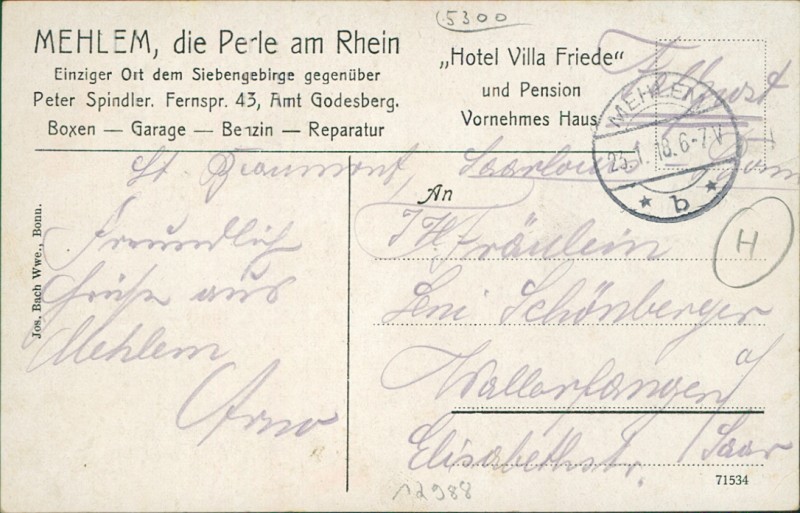 5300
MEHLEM, die Perle am Rhein
Einziger Ort dem Siebengebirge gegenüber
Peter Spindler. Fernspr. 43, Amt Godesberg.
Boxen — Garage — Benzin — Reparatur
„Hotel Villa Friede“
und Pension
Vornehmes Haus
Feldpost
MEHLEM
23.1.18. 6-7 V
* b *
St. Beaumont, Saarlouis
Freundlich
Grüße aus
Mehlem
Arno
Jos. Bach Wwe., Bonn.
An
Fräulein
Leni Schönberger
Wallerfangen a/
Saar
Elisabethstr.
H
71534
12988